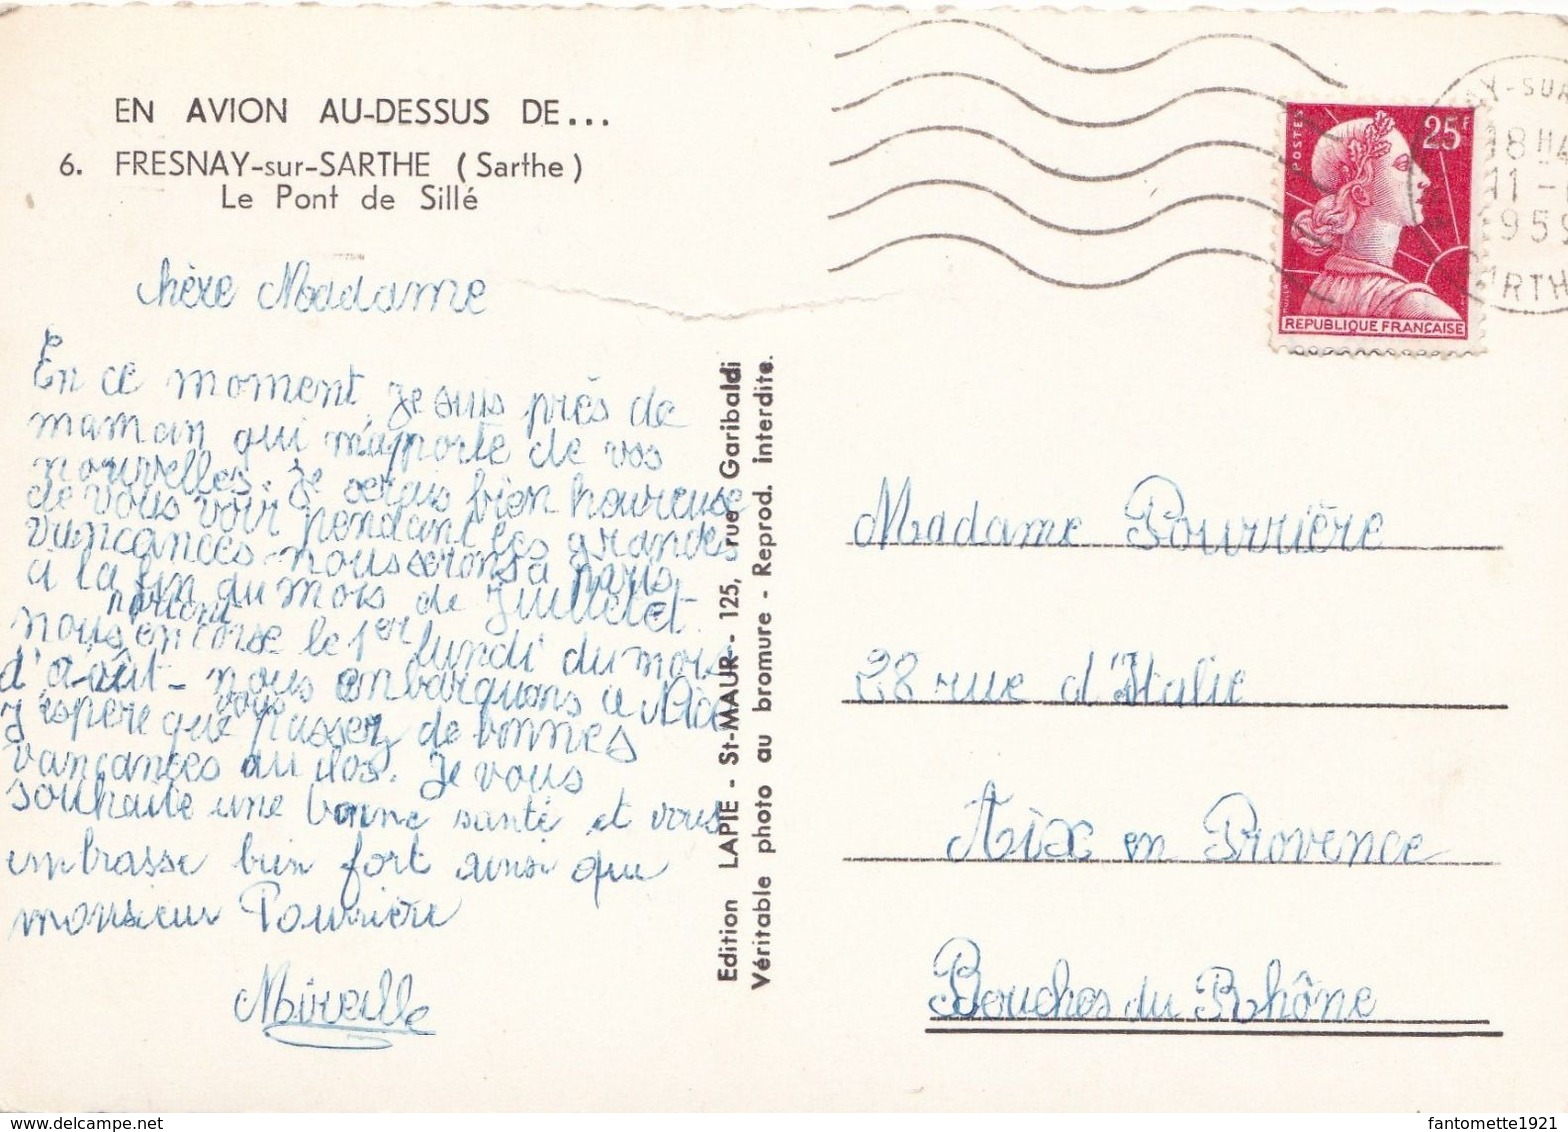 EN AVION AU-DESSUS DE...
6. FRESNAY-sur-SARTHE (Sarthe)
Le Pont de Sillé
chère Madame
En ce moment, je suis près de
maman qui m'apporte de vos
nouvelles. Je serais bien heureuse
de vous voir pendant les grandes
vancances nous serons à paris
à la fin du mois de Juilletet
nous partont
en corse le 1er lundi du mois
d'a-oût - nous embarquons à Nice
J'espere que vous passez de bonnes
vancances au
souhaite une bonne santé et vous
embrasse bien fort ainsi que
monsieur Pourrière
Mireille
Edition LAPIE - St-MAUR - 125, rue Garibaldi
Véritable photo au bromure - Reprod. interdite.
POSTES
25F
REPUBLIQUE FRANÇAISE
AY-SUR
18H4
11 -
1959
ARTH
Madame Pourrière
28 rue d'Italie
Aix en Provence
Bouches du Rhône
fantomette1921